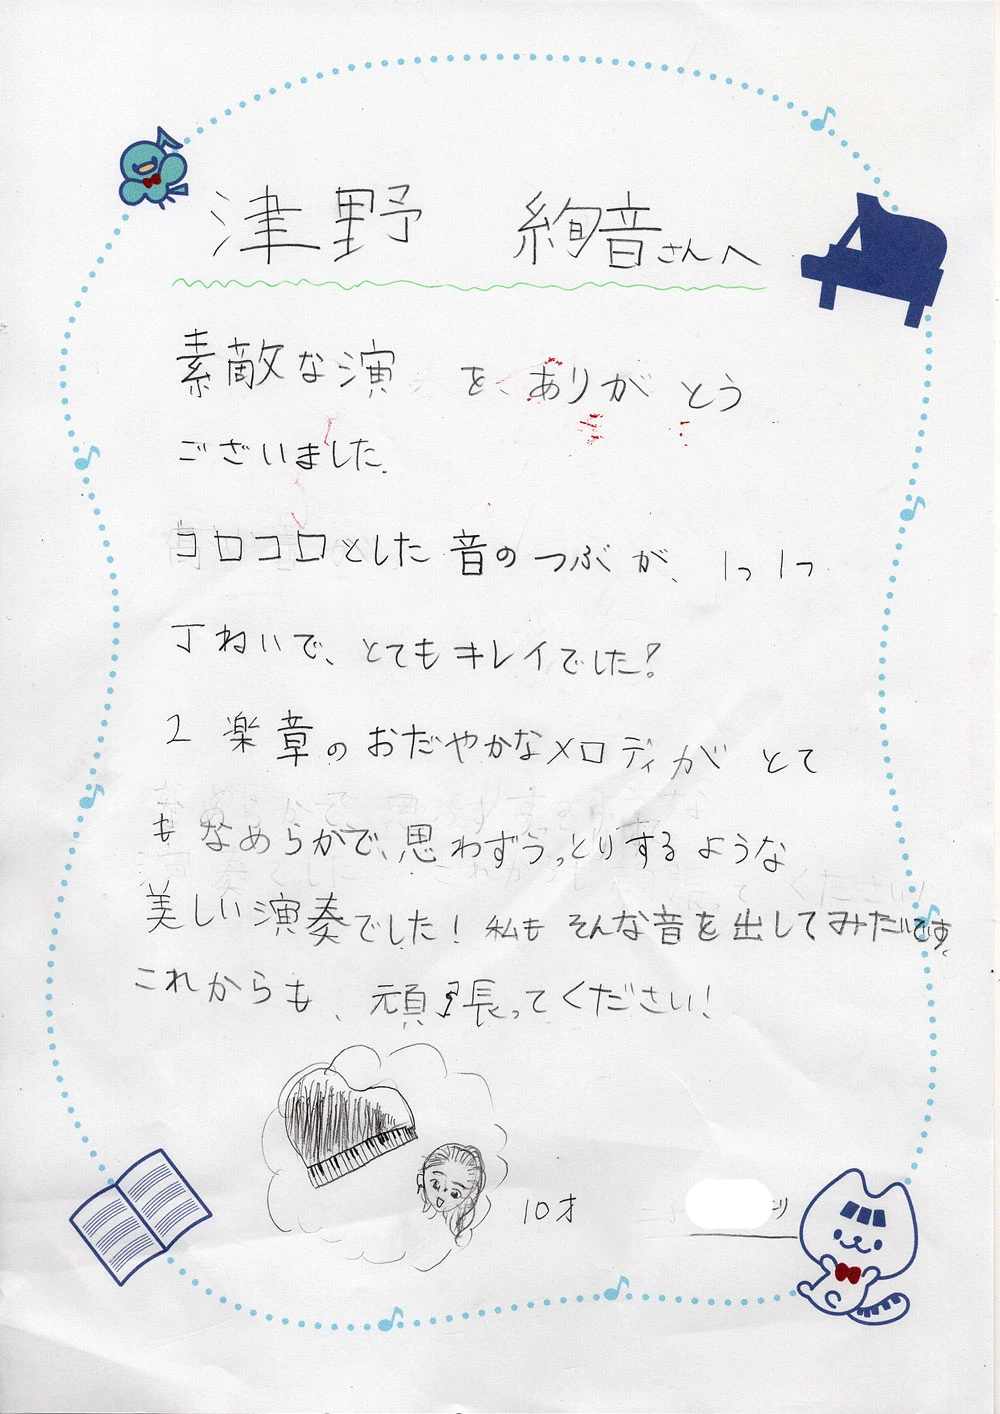 津野 絢音さんへ
素敵な演 を、ありがとう
ございました。
コロコロとした音のつぶが、1つ1つ
丁ねいで、とてもキレイでした!
2楽章のおだやかなメロディがとて
もなめらかで、思わずうっとりするような
美しい演奏でした! 私もそんな音を出してみたいです。
これからも、頑張ってください!
10才 より